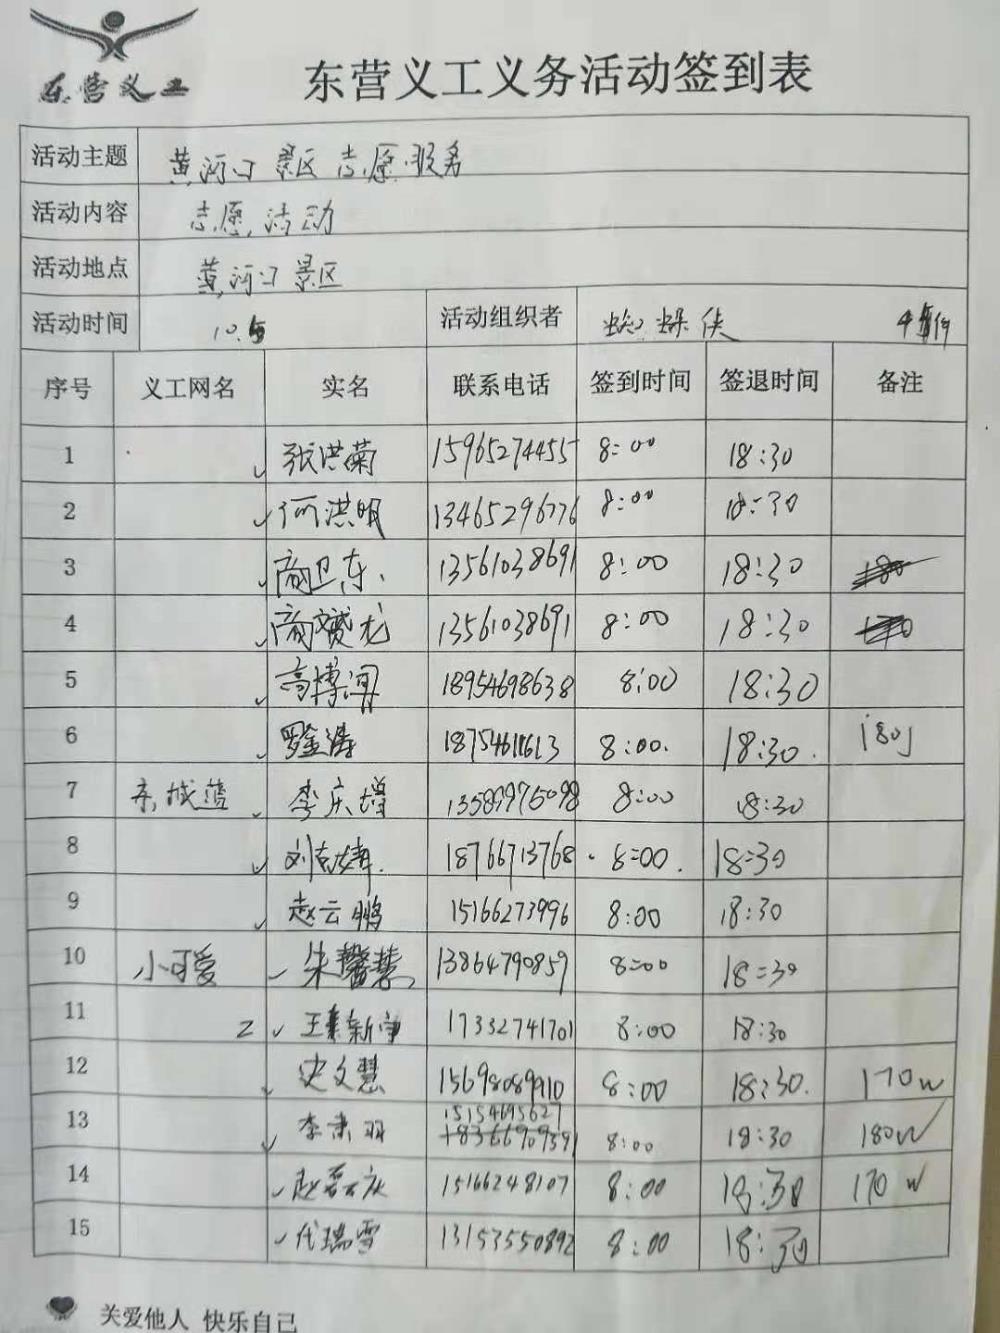 东营义工
东营义工义务活动签到表
活动主题 黄河口景区志愿服务
活动内容 志愿活动
活动地点 黄河口景区
活动时间 10.5 活动组织者 蜘蛛侠
序号 义工网名 实名 联系电话 签到时间 签退时间 备注
1 张洪菊 15965274455 8:00 18:30
2 何洪明 13465296776 8:00 18:30
3 商卫东 13561038691 8:00 18:30
4 商赟龙 13561038691 8:00 18:30
5 高博闻 18954698638 8:00 18:30
6 罗金涛 18754611613 8:00 18:30 180J
7 东城蓝 李庆增 13589975098 8:00 18:30
8 18766713768 8:00 18:30
9 赵云鹏 15166273996 8:00 18:30
10 小可爱 朱馨慧 13864790859 8:00 18:30
11 2 17332741701 8:00 18:30
12 史文慧 15698089910 8:00 18:30 170W
13 15154695627 8:00 18:30 180W
14 15166248107 8:00 18:30 170W
15 代瑞雪 13153550892 8:00 18:30
关爱他人 快乐自己